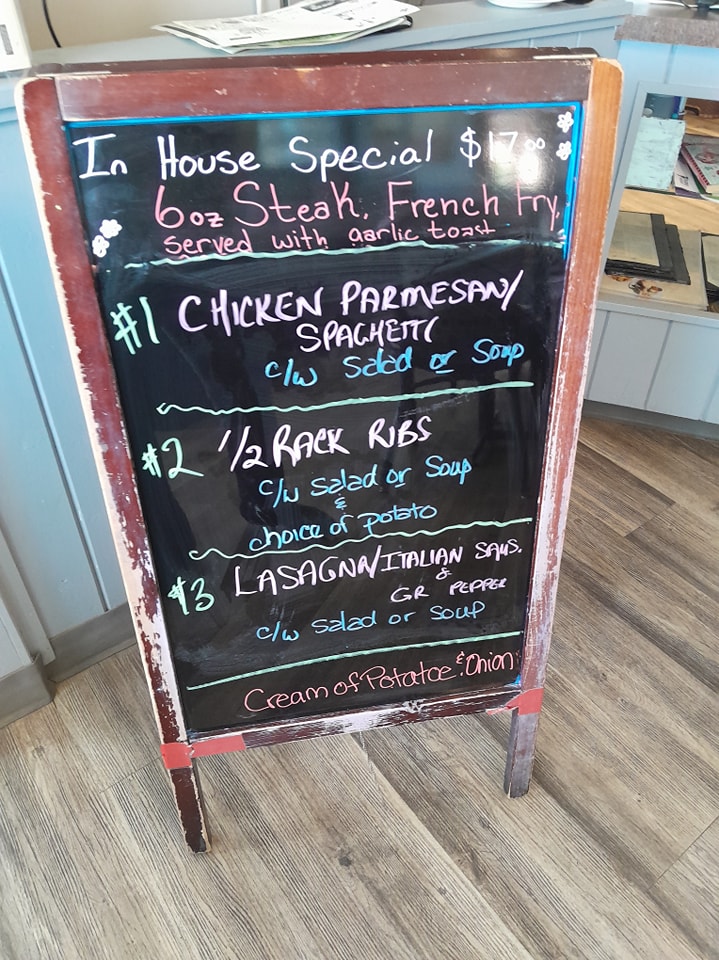 In House Special $17.00
6oz Steak, French Fry,
served with garlic toast
#1 CHICKEN PARMESAN/
SPAGHETTI
c/w Salad or Soup
#2 1/2 RACK RIBS
c/w Salad or Soup
&
choice of potato
#3 LASAGNA/ITALIAN SAUS.
&
GR PEPPER
c/w Salad or Soup
Cream of Potatoe & Onion